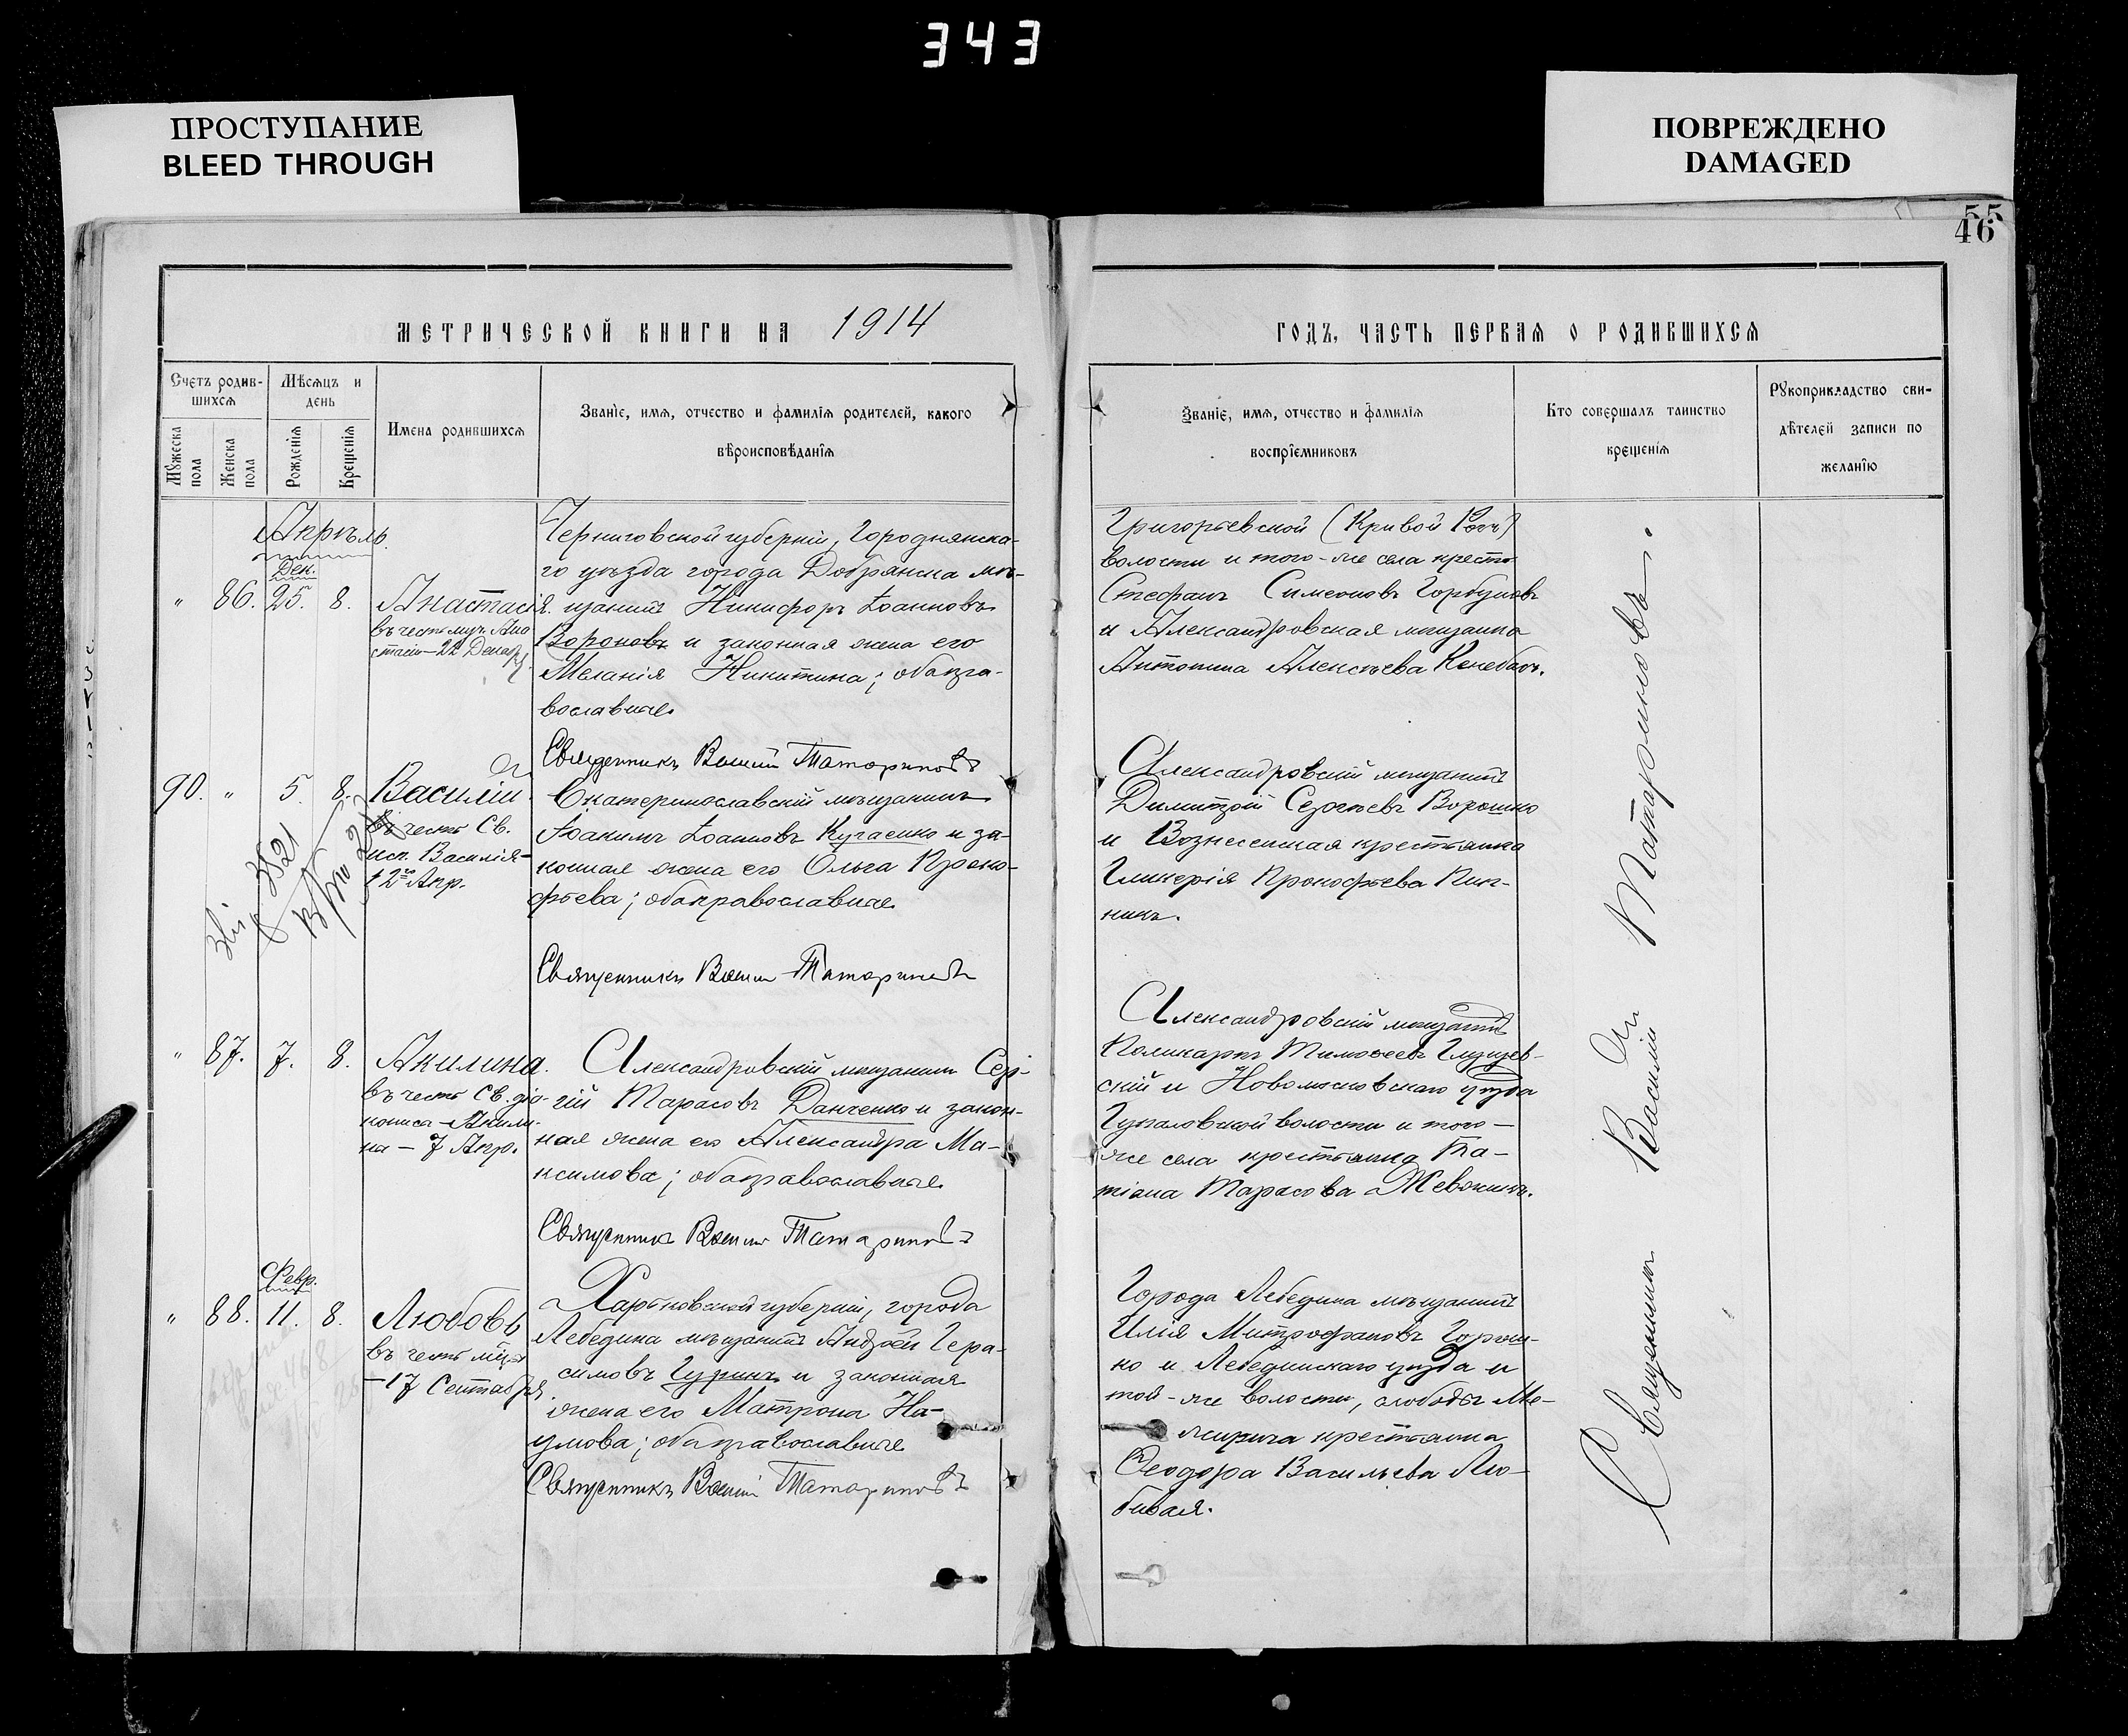 343
ПРОСТУПАНИЕ
BLEED THROUGH
ПОВРЕЖДЕНО
DAMAGED
55
46
МЕТРИЧЕСКОЙ КНИГИ НА 1914
ГОДЪ, ЧАСТЬ ПЕРВАЯ О РОДИВШИХСЯ
Счетъ родив-
шихся
Мужеска пола
Женска пола
Мѣсяцъ и
день
Рожденія
Крещенія
Имена родившихся
Званіе, имя, отчество и фамилія родителей, какого
вѣроисповѣданія
Званіе, имя, отчество и фамилія
воспріемниковъ
Кто совершалъ таинство
крещенія
Рукоприкладство сви-
дѣтелей записи по
желанію
Апрѣль.
Дек.
" 86. 25. 8. Анастасія.
въ честь муч. Ана
стасіи – 22 Декаб.
Черниговской губерніи, Городнянска-
го уѣзда города Добрянска мѣ-
щанинъ Никифоръ Іоанновъ
Вороновъ и законная жена его
Меланія Никитина; оба пра-
вославные.
Священникъ Василій Татариновъ
Григорьевской (Кривой Рогъ)
волости и того-же села крест.
Стефанъ Симеоновъ Горбуновъ
и Александровская мѣщанка
Антонина Алексѣева
90. " 5. 8. Василій.
Въ честь Св.
исп. Василія –
12 Апр.
3521
Екатеринославскій мѣщанинъ
Іоакимъ Іоанновъ Кучаенко и за-
конная жена его Ольга Проко-
фьева; оба православные.
Священникъ Василій Татариновъ
Александровскій мѣщанинъ
Димитрій Сергѣевъ Ворошко
и Вознесенская крестьянка
Гликерія Прокофьева Пин-
никъ.
" 87. 7. 8. Акилина.
въ честь Св.
– Акили-
на – 7 Апр.
Александровскій мѣщанинъ Сер-
гій Тарасовъ Данченко и закон-
ная жена его Александра Ма-
ксимова; оба православные.
Священникъ Василій Татариновъ
Александровскій мѣщанинъ
Поликарпъ Тимоѳеевъ
скій и Новомосковскаго уѣзда
Гупаловской волости и того –
же села крестьянка Та-
тіана Тарасова
Февр.
" 88. 11. 8. Любовь
въ честь муч.
– 17 Сентября
Харьковской губерніи, города
Лебедина мѣщанинъ Андрей Гера-
симовъ Гуринъ и законная
жена его Матрона На-
умова; оба православные.
Священникъ Василій Татариновъ
Города Лебедина мѣщанинъ
Илія Митрофановъ Горош-
ко и Лебединскаго уѣзда и
той-же волости, слободы Ме-
жирича крестьянка
Ѳеодора Васильева Лю-
бивая.
Священникъ Василій Татариновъ.